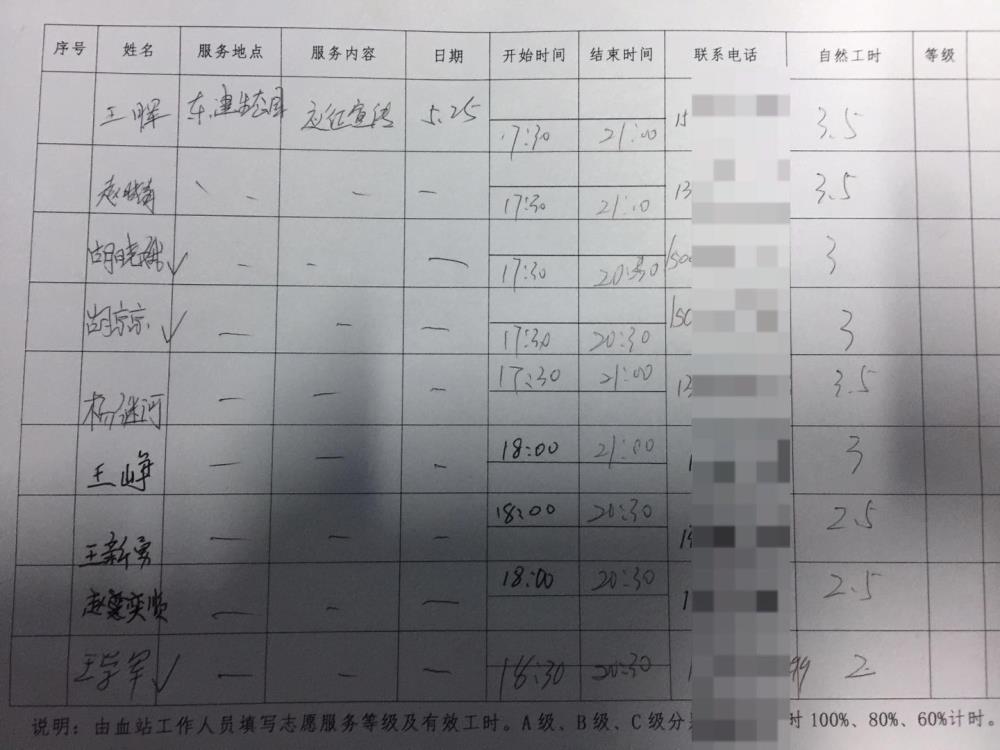 序号 姓名 服务地点 服务内容 日期 开始时间 结束时间 联系电话 自然工时 等级
王晖 宣传 5.25 17:30 21:00 15 3.5
赵 17:30 21:10 13 3.5
胡晓 ✓ 17:30 20:30 1500 3
胡京京 ✓ 17:30 20:30 150 3
杨继河 17:30 21:00 13 3.5
王峥 18:00 21:00 1 3
王新勇 18:00 20:30 1 2.5
赵 18:00 20:30 1 2.5
王学军 ✓ 18:30 20:30 1 99 2
说明：由血站工作人员填写志愿服务等级及有效工时。A级、B级、C级分 时100%、80%、60%计时。